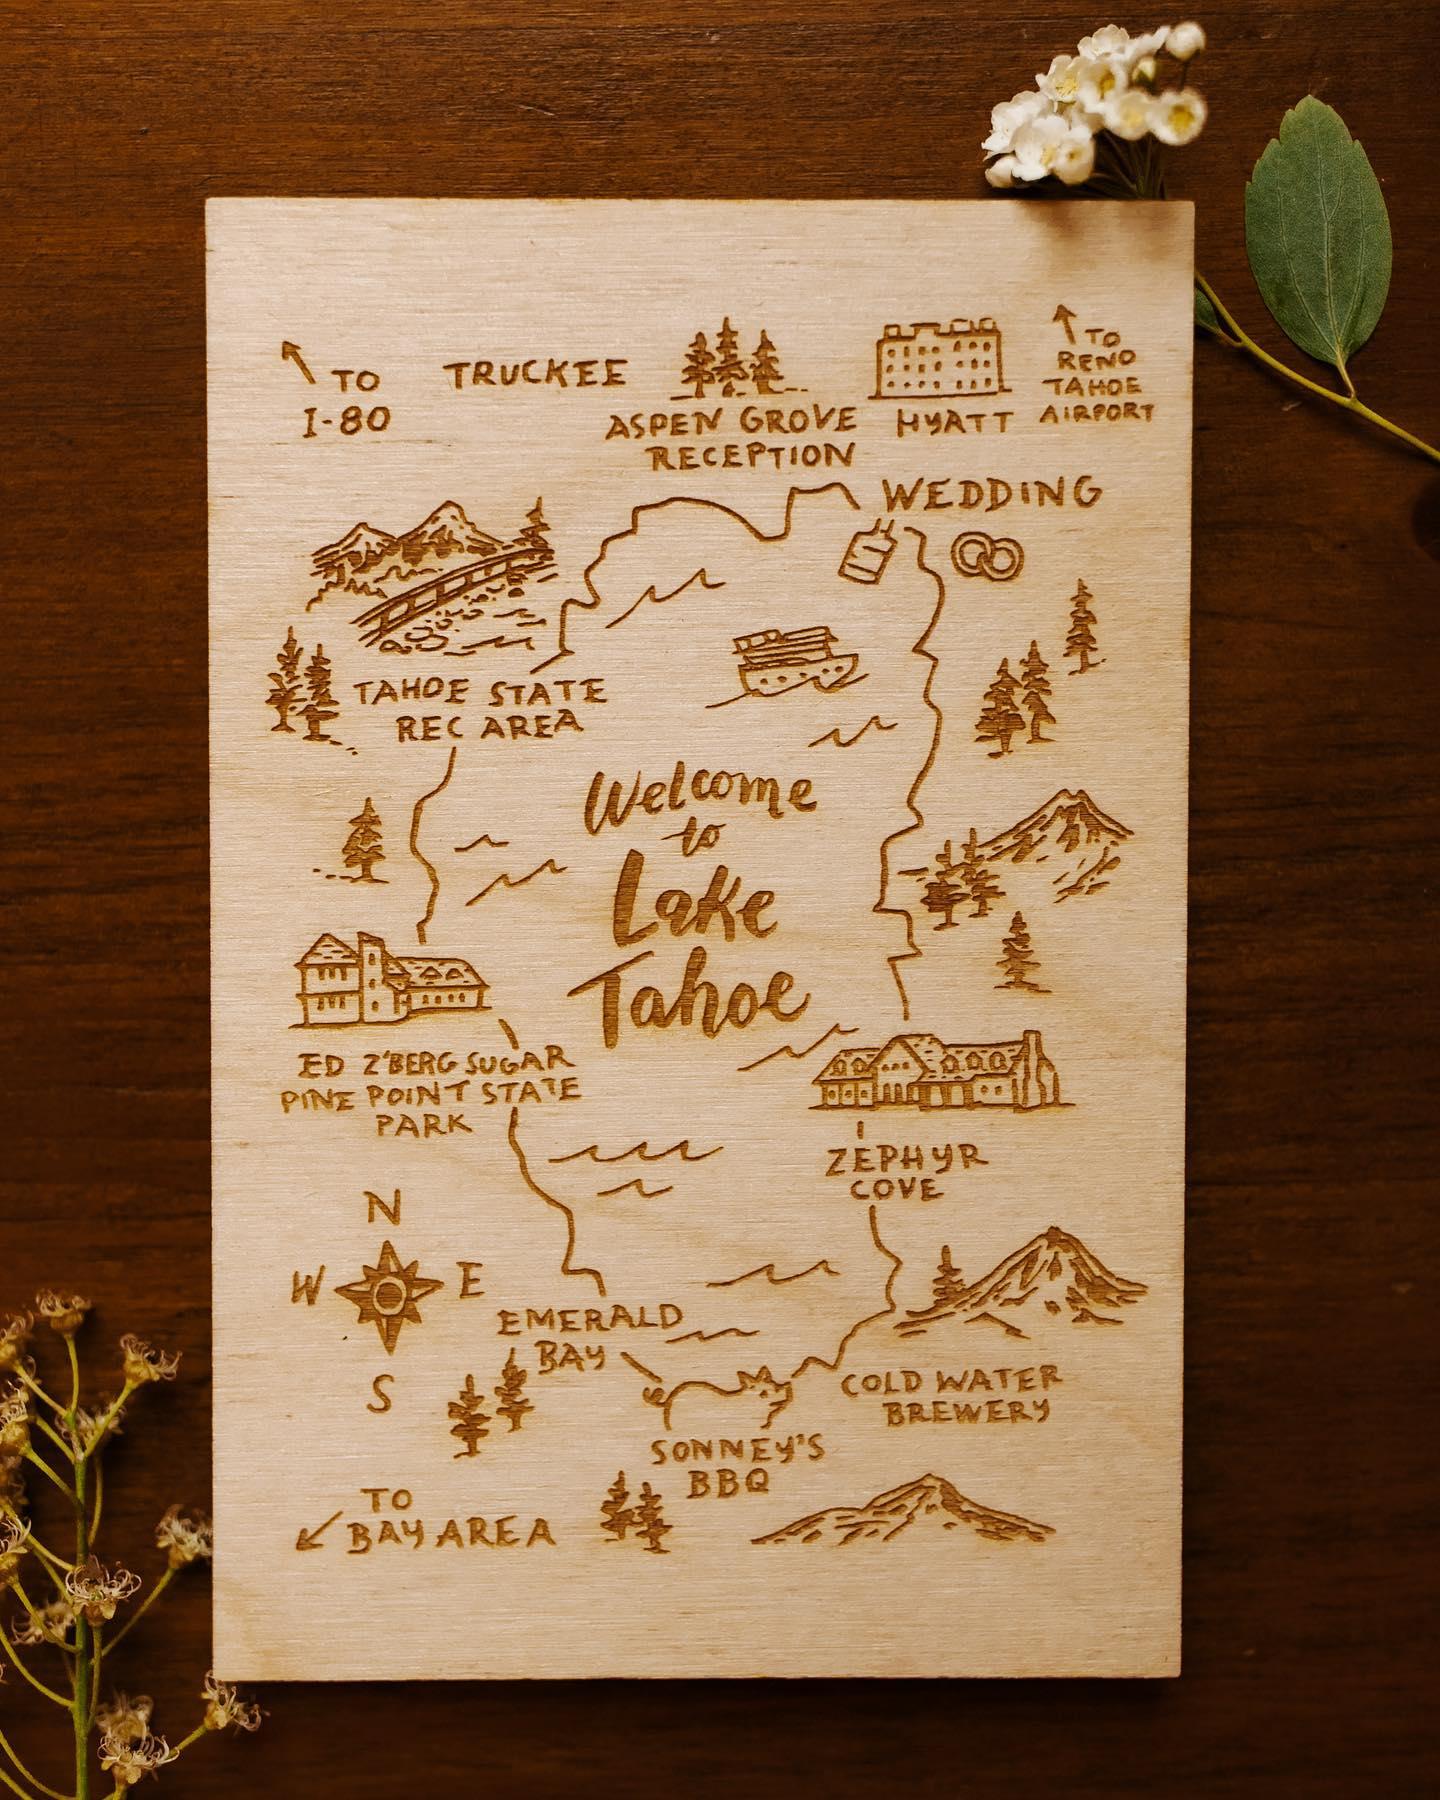 TO
I-80
TRUCKEE
ASPEN GROVE
RECEPTION
HYATT
TO
RENO
TAHOE
AIRPORT
WEDDING
TAHOE STATE
REC AREA
Welcome
to
Lake
Tahoe
ED Z'BERG SUGAR
PINE POINT STATE
PARK
ZEPHYR
COVE
N
W E
S
EMERALD
BAY
COLD WATER
BREWERY
SONNEY'S
BBQ
TO
BAY AREA